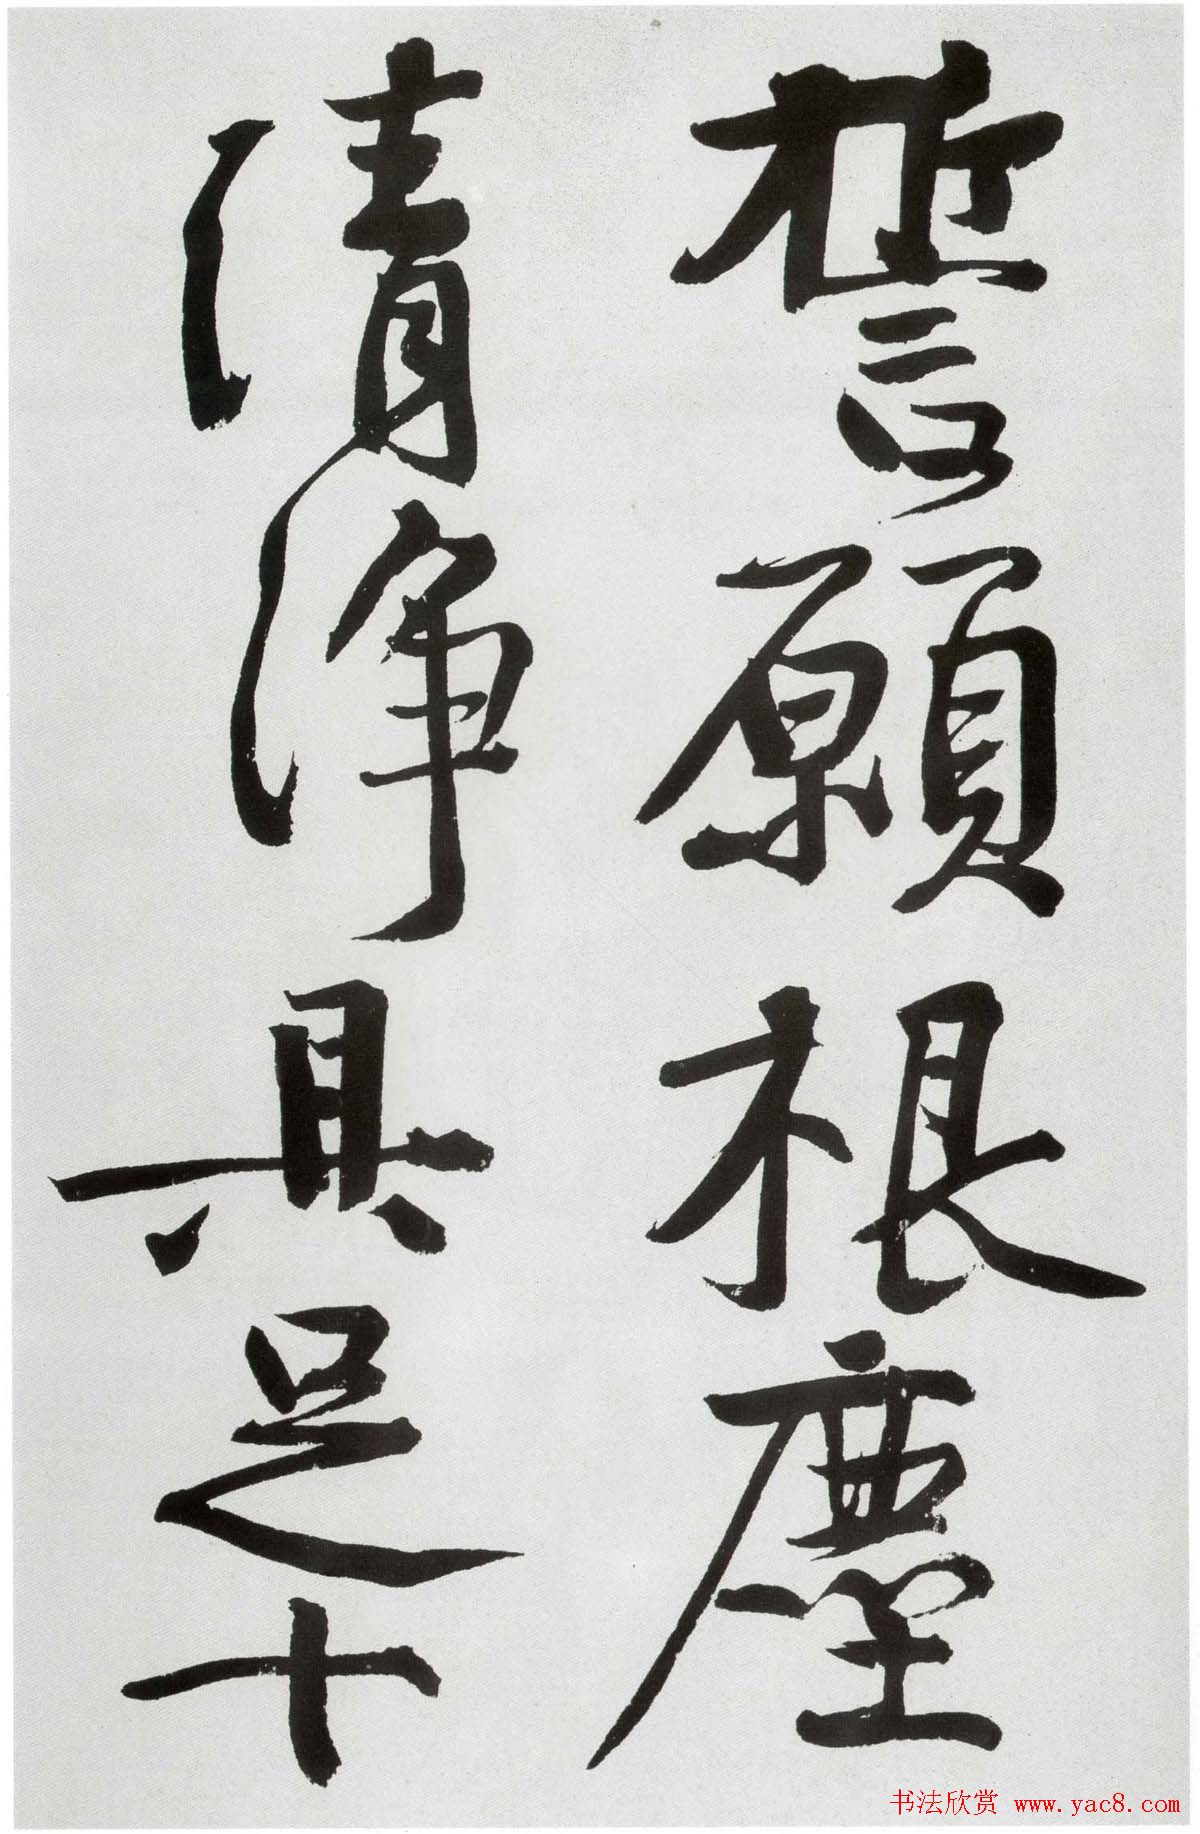 誓願根塵
清淨具足十
书法欣赏 www.yac8.com